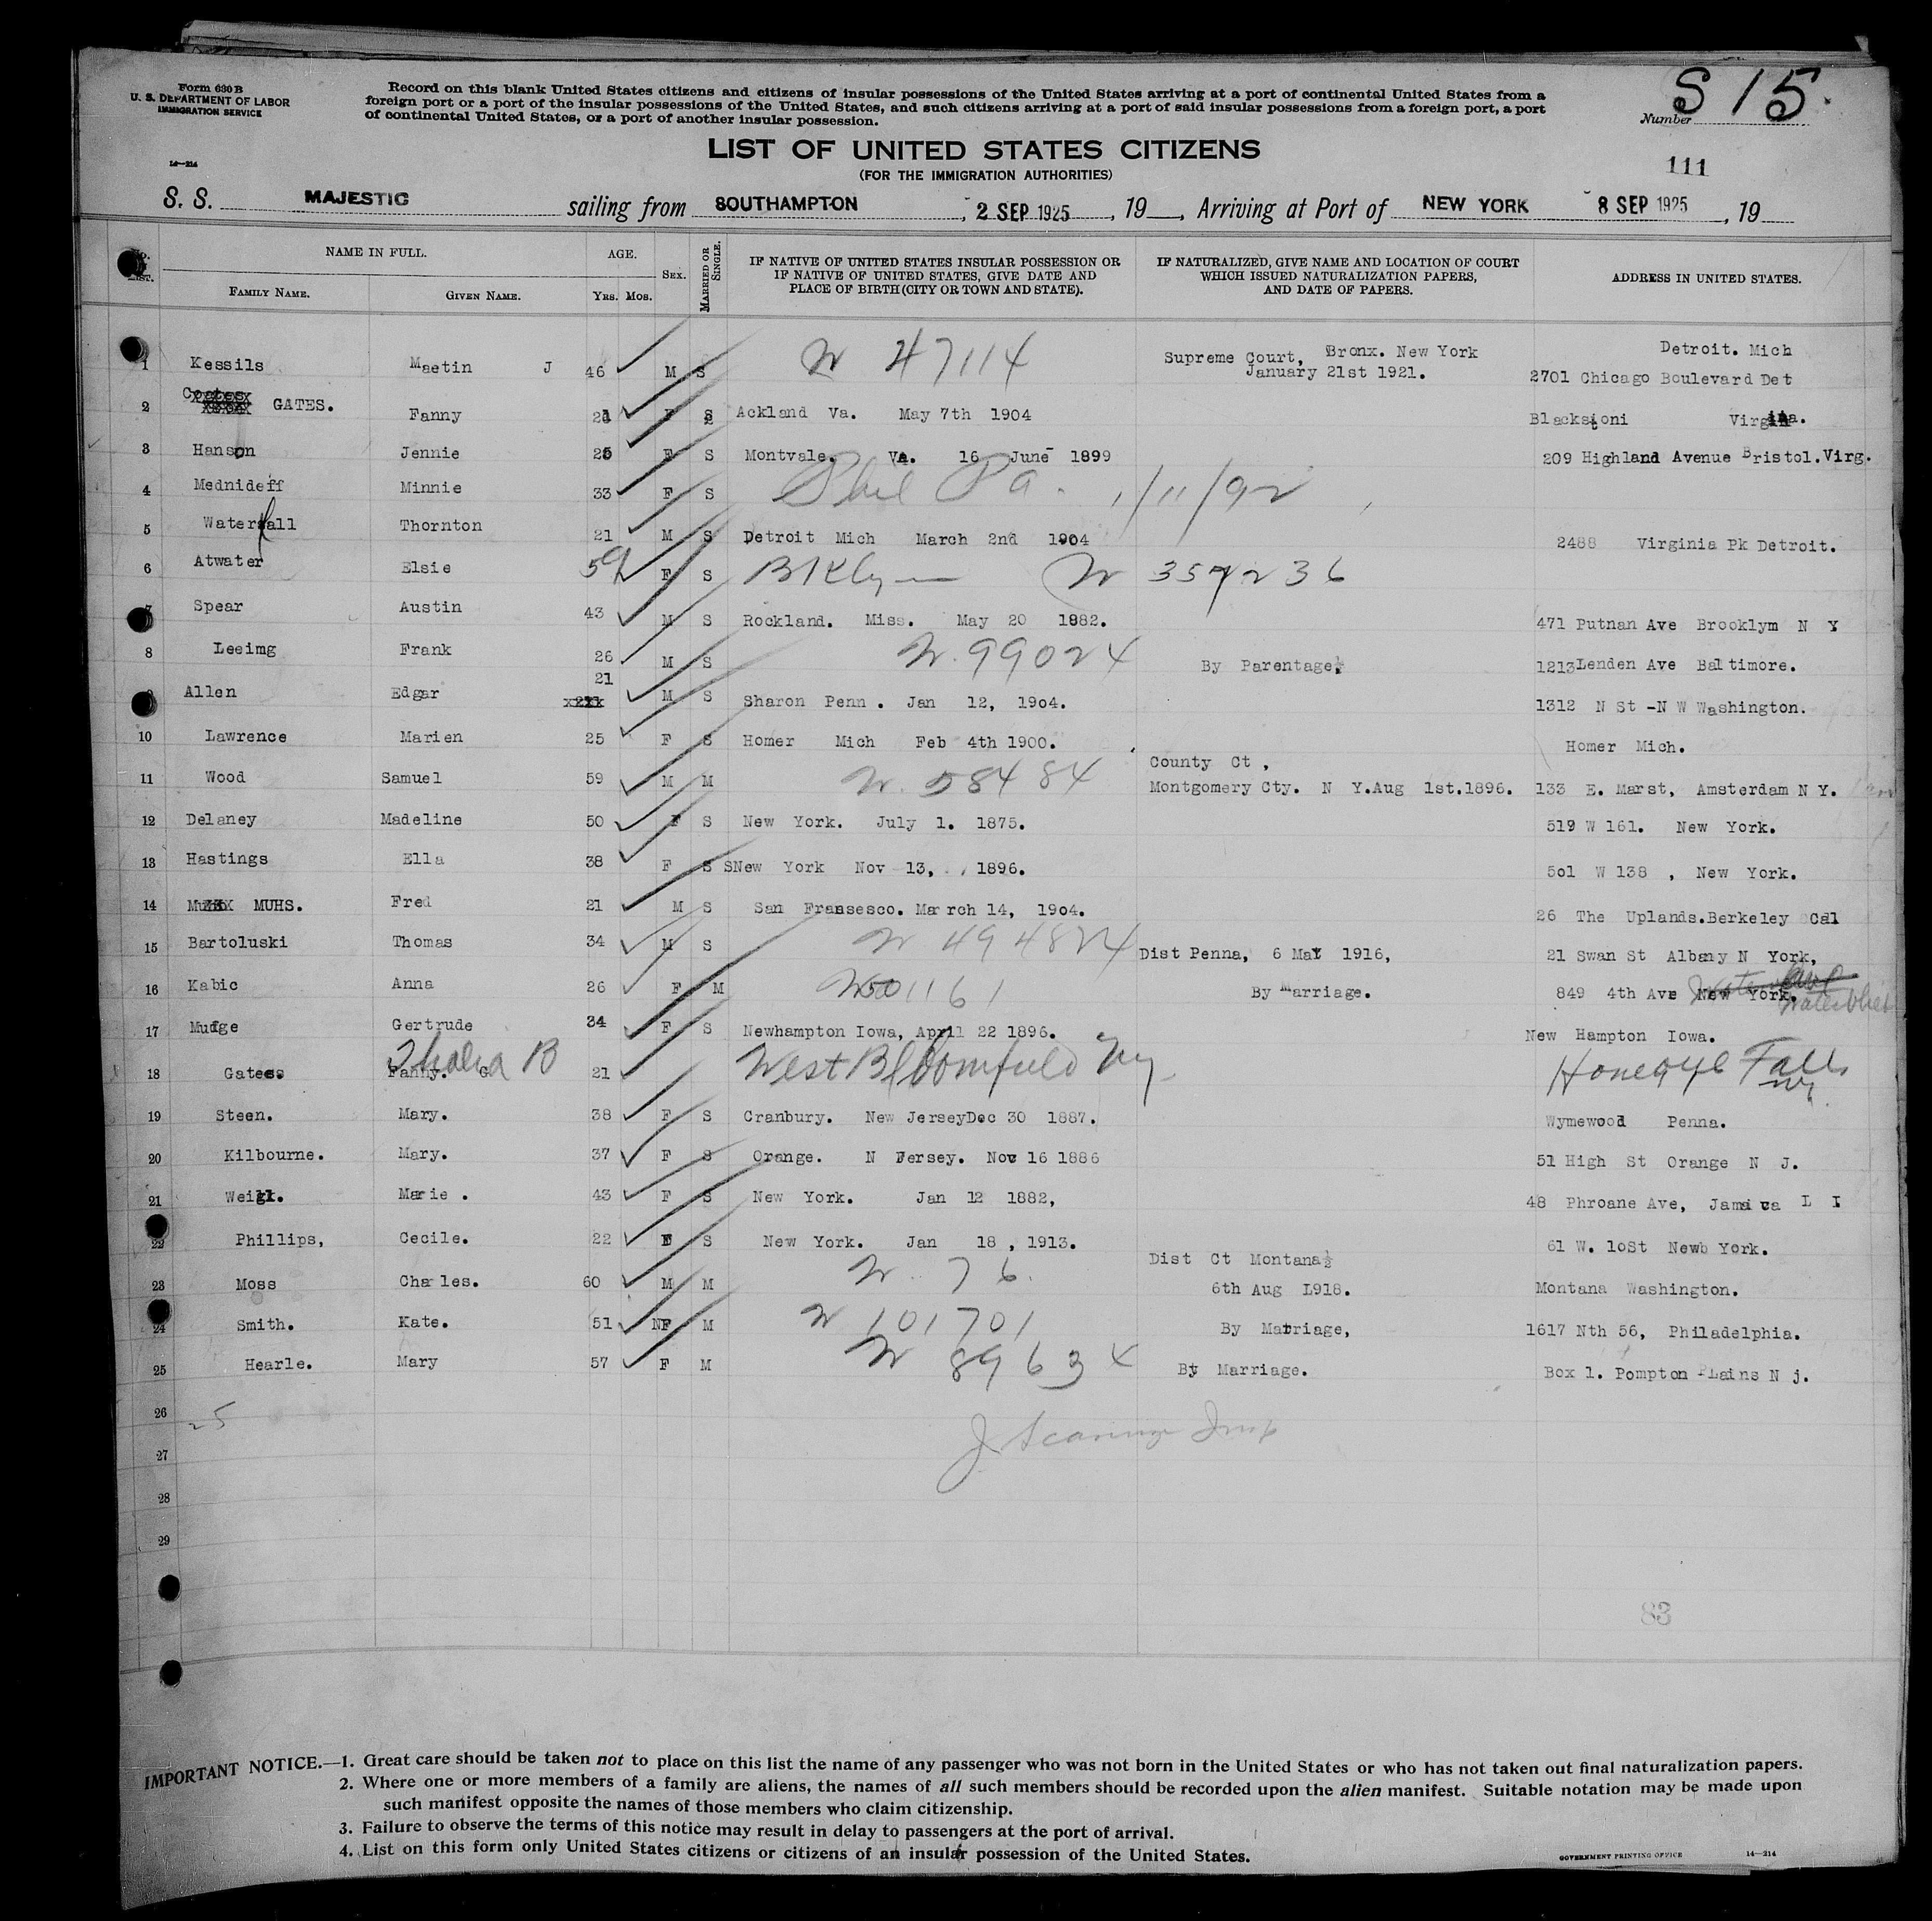 Form 630 B
U. S. DEPARTMENT OF LABOR
IMMIGRATION SERVICE
14—214
Record on this blank United States citizens and citizens of insular possessions of the United States arriving at a port of continental United States from a
foreign port or a port of the insular possessions of the United States, and such citizens arriving at a port of said insular possessions from a foreign port, a port
of continental United States, or a port of another insular possession.
S 15
Number
LIST OF UNITED STATES CITIZENS
(FOR THE IMMIGRATION AUTHORITIES)
111
S. S. MAJESTIC sailing from SOUTHAMPTON , 2 SEP 1925 , 19 , Arriving at Port of NEW YORK 8 SEP 1925 , 19
NAME IN FULL. AGE. SEX. MARRIED OR SINGLE. IF NATIVE OF UNITED STATES INSULAR POSSESSION OR IF NATIVE OF UNITED STATES, GIVE DATE AND PLACE OF BIRTH (CITY OR TOWN AND STATE). IF NATURALIZED, GIVE NAME AND LOCATION OF COURT WHICH ISSUED NATURALIZATION PAPERS, AND DATE OF PAPERS. ADDRESS IN UNITED STATES.
LIST. FAMILY NAME. GIVEN NAME. YRS. MOS.
1 Kessils Maetin J 46 M S 47114 Supreme Court, Bronx. New York January 21st 1921. Detroit. Mich 2701 Chicago Boulevard Det
2 Coates GATES. Fanny 21 F S Ackland Va. May 7th 1904 Blackstoni Virginia.
3 Hanson Jennie 25 F S Montvale. Va. 16 June 1899 209 Highland Avenue Bristol. Virg.
4 Mednideff Minnie 33 F S Phil Pa. 1/11/92
5 Waterfall Thornton 21 M S Detroit Mich March 2nd 1904 2488 Virginia Pk Detroit.
6 Atwater Elsie 59 F S BKlyn 357236
7 Spear Austin 43 M S Rockland. Miss. May 20 1882. 471 Putnan Ave Brooklym N Y
8 Leeimg Frank 26 M S 99024 By Parentage. 1213 Lenden Ave Baltimore.
9 Allen Edgar 21 M S Sharon Penn . Jan 12, 19o4. 1312 N St -N W Washington.
10 Lawrence Marien 25 F S Homer Mich Feb 4th 1900. Homer Mich.
11 Wood Samuel 59 M M 58484 County Ct , Montgomery Cty. N Y.Aug 1st.1896. 133 E. Marst, Amsterdam N Y.
12 Delaney Madeline 50 F S New York. July 1. 1875. 519 W 161. New York.
13 Hastings Ella 38 F S SNew York Nov 13, 1896. 5o1 W 138 , New York.
14 MUHS. Fred 21 M S San Fransesco. March 14, 19o4. 26 The Uplands.Berkeley Cal
15 Bartoluski Thomas 34 M S 494824 Dist Penna, 6 May 1916, 21 Swan St Albany N York,
16 Kabic Anna 26 F M 501161 By Marriage. 849 4th Ave New York. Watervliet
17 Mudge Gertrude 34 F S Newhampton Iowa, April 22 1896. New Hampton Iowa.
18 Gates. Fanny. G Thalia B 21 West Bloomfield Ny Honeoye Falls Ny.
19 Steen. Mary. 38 F S Cranbury. New JerseyDec 30 1887. Wymewood Penna.
20 Kilbourne. Mary. 37 F S Orange. N Jersey. Nov 16 1886 51 High St Orange N J.
21 Weigl. Marie . 43 F S New York. Jan 12 1882, 48 Phroane Ave, Jamaica L I
22 Phillips, Cecile. 22 F S New York. Jan 18 , 1913. 61 W. 1oSt Newb York.
23 Moss Charles. 60 M M 76. Dist Ct Montana 6th Aug 1918. Montana Washington.
24 Smith. Kate. 51 F M 101701 By Marriage, 1617 Nth 56, Philadelphia.
25 Hearle. Mary 57 F M 89634 By Marriage. Box 1. Pompton Plains N j.
26 25
27
28
29
83
IMPORTANT NOTICE.—1. Great care should be taken not to place on this list the name of any passenger who was not born in the United States or who has not taken out final naturalization papers.
2. Where one or more members of a family are aliens, the names of all such members should be recorded upon the alien manifest. Suitable notation may be made upon
such manifest opposite the names of those members who claim citizenship.
3. Failure to observe the terms of this notice may result in delay to passengers at the port of arrival.
4. List on this form only United States citizens or citizens of an insular possession of the United States.
GOVERNMENT PRINTING OFFICE 14—214